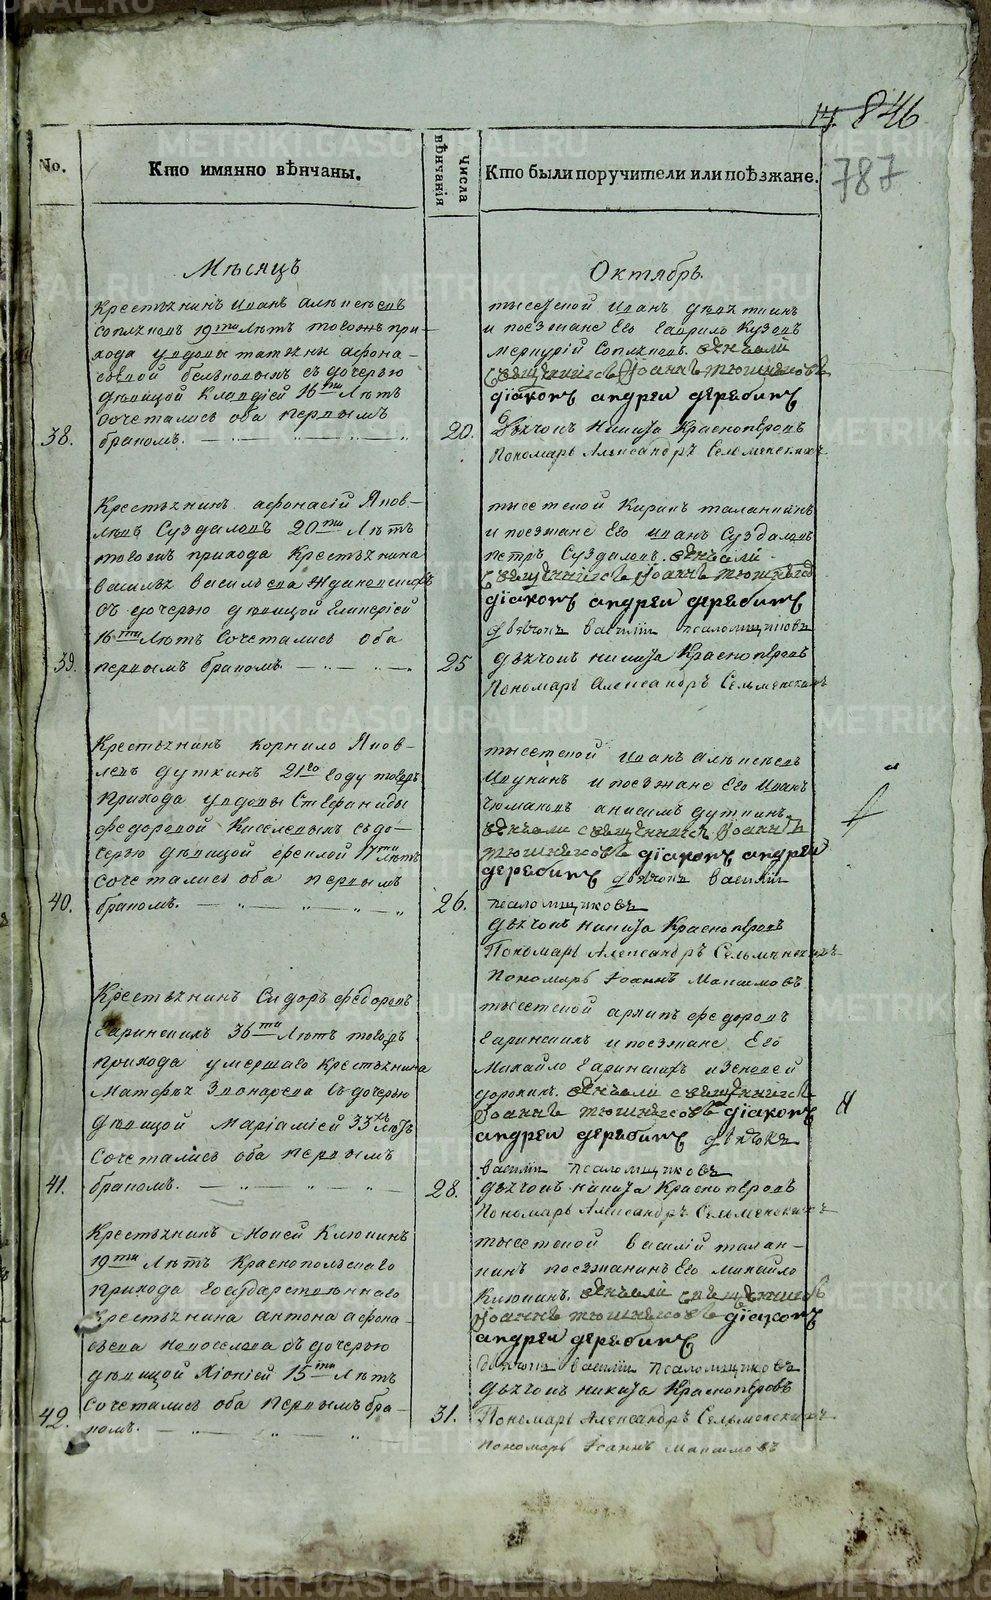 14. 846
787
No.
Кто имянно вѣнчаны.
Числа вѣнчанія
Кто были поручители или поѣзжане.
Мѣсяцъ
Октябрь.
38.
Крестьянинъ Иванъ Алексѣевъ
19ти Лѣтъ тогожъ при-
хода вдовы Татьяны Афона-
сьевой съ дочерью
дѣвицой Клавдіей 16ти Лѣтъ
сочетались оба первымъ
бракомъ.
20.
тысецкой Иванъ
и поезжане Его Гаврило
Меркурій венчали
Священникъ Іоаннъ Тюшняковъ
діаконъ андреи дерябинъ
Дьячокъ Никита Красноперовъ
Пономарь Александръ Сельменскихъ
39.
Крестьянинъ Афонасій Яков-
левъ Суздаловъ 20ти Лѣтъ
тогожъ прихода Крестьянина
Василья Васильева
съ дочерью дѣвицой Гликеріей
16ти Лѣтъ Сочетались оба
первымъ бракомъ.
25
тысецкой Кирикъ Таланкинъ
и поезжане Его Иванъ Суздаловъ
петръ Суздаловъ. венчали
Священникъ Іоаннъ Тюшняковъ
діаконъ андреи дерябинъ
дьячокъ василіи псаломщиковъ
дьячокъ никита Красноперовъ
Пономарь Александръ Сельменскихъ
40.
Крестьянинъ Корнило Яков-
левъ Дуткинъ 21го году тогожъ
прихода вдовы Стефаниды
Федоровой Киселевыхъ съ до-
черью дѣвицой Феклой 17ти Лѣтъ
Сочетались оба первымъ
бракомъ.
26.
тысецкой Иванъ Алексѣевъ
и поезжане Его Иванъ
Чюмаковъ анисимъ Дуткинъ
венчали священникъ Іоаннъ
Тюшняковъ діаконъ андреи
дерябинъ дьячокъ василіи
псаломщиковъ
дьячокъ никита Красноперовъ
Пономарь Александръ Сельменскихъ
Пономарь Іоаннъ Максимовъ
41.
Крестьянинъ Сидоръ Федоровъ
Гаринскихъ 36ти Лѣтъ тогожъ
прихода умершаго Крестьянина
Матфѣя Звонарева съ дочерью
дѣвицой Маріамией 33хъ Лѣтъ
Сочетались оба первымъ
бракомъ.
28.
тысецкой архипъ Федоровъ
Гаринскихъ и поезжане Его
Михайло Гаринскихъ и Зеновей
венчали священникъ
Іоаннъ Тюшняковъ діаконъ
андреи дерябинъ дьячокъ
василіи псаломщиковъ
дьячокъ никита Красноперовъ
Пономарь Александръ Сельменскихъ
42.
Крестьянинъ Моисей Клюкинъ
19ти Лѣтъ Краснопольскаго
прихода государственнаго
Крестьянина Антона Афона-
сьева Новоселова съ дочерью
дѣвицой Хіоніей 15ти Лѣтъ
сочетались оба первымъ бра-
комъ.
31.
тысетской василій Талан-
кинъ поезжанинъ Его Михайло
Клюкинъ. венчали священникъ
Іоаннъ Тюшняковъ діаконъ
андреи дерябинъ
дьячокъ василіи псаломщиковъ
дьячокъ никита Красноперовъ
Пономарь Александръ Сельменскихъ
Пономарь Іоаннъ Максимовъ
METRIKI.GASO-URAL.RU